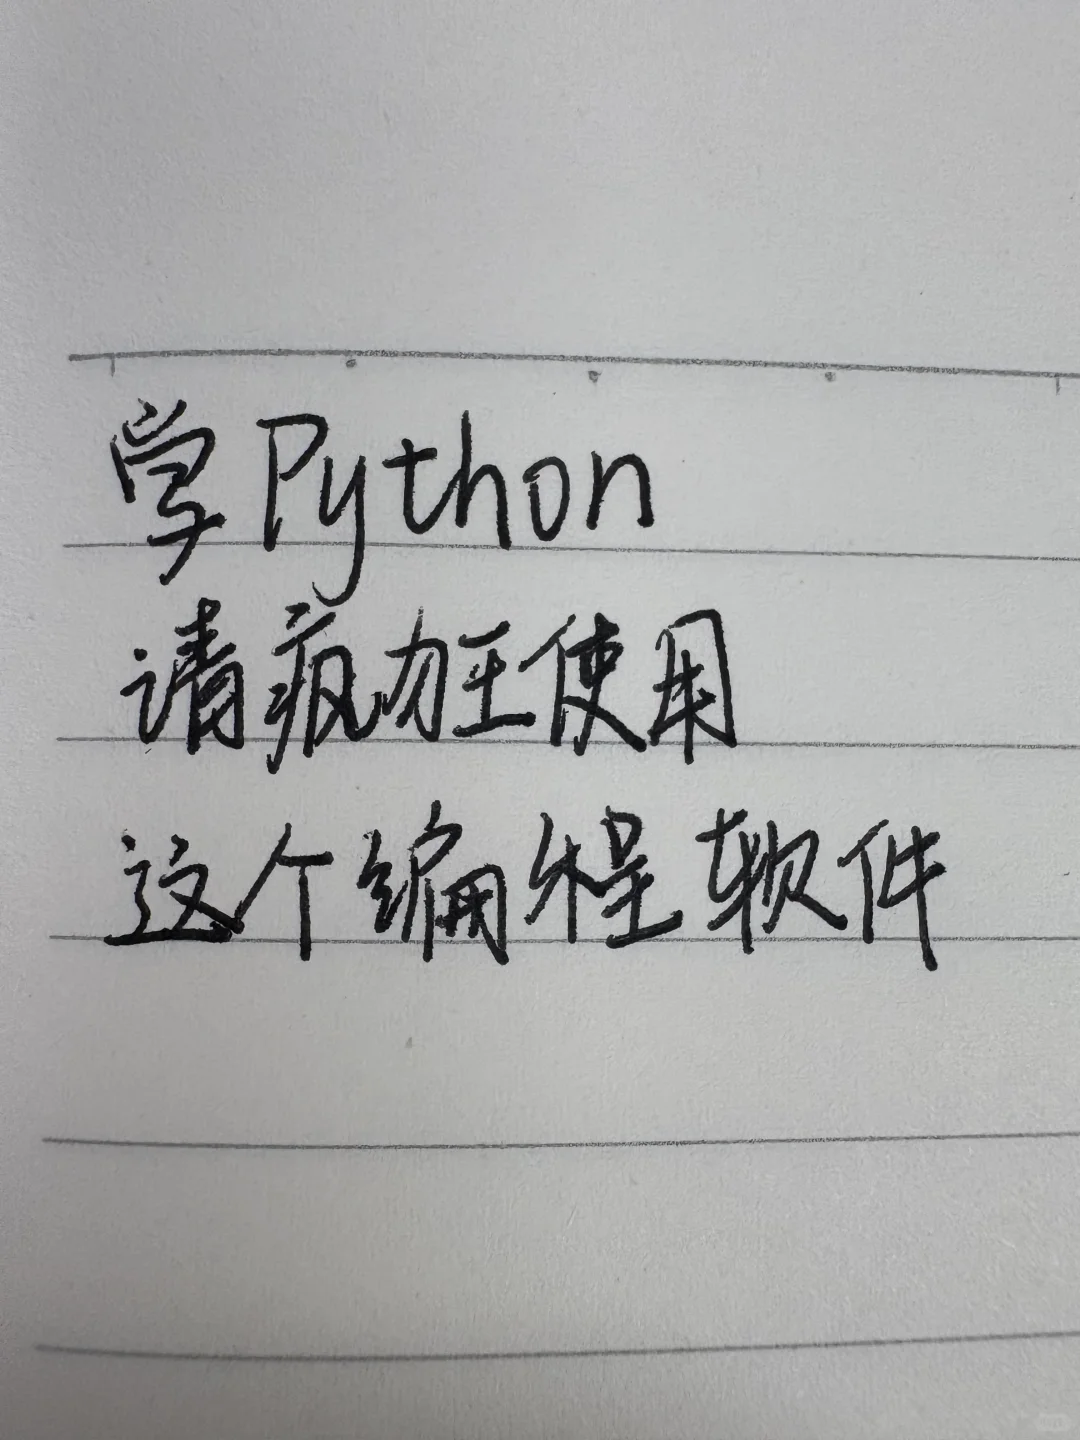 学Python
请疯狂使用
这个编程软件